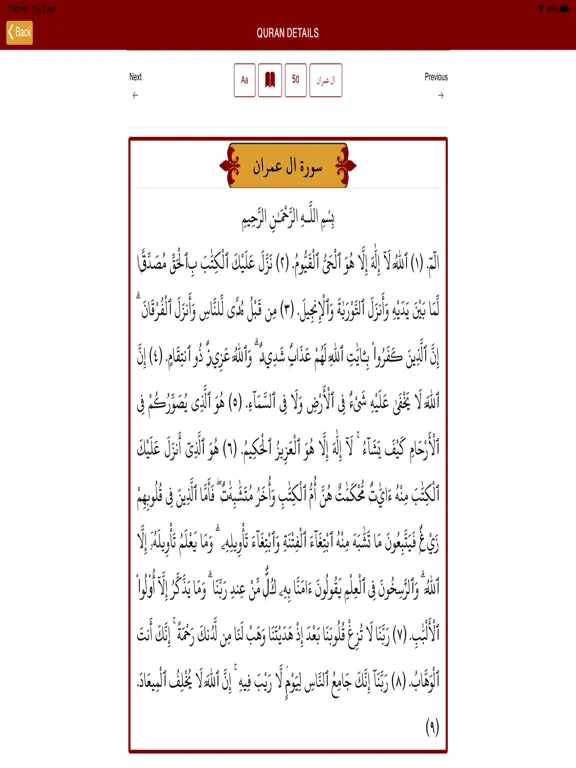 2:00 PM Thu 2 Apr
Back
QURAN DETAILS
Next
Aa
50
ال عمران
Previous
←
→
سورة ال عمران
بِسْمِ اللَّـهِ الرَّحْمَـٰنِ الرَّحِيمِ
الٓمٓ. (١) ٱللَّهُ لَآ إِلَٰهَ إِلَّا هُوَ ٱلْحَىُّ ٱلْقَيُّومُ. (٢) نَزَّلَ عَلَيْكَ ٱلْكِتَٰبَ بِٱلْحَقِّ مُصَدِّقًا
لِّمَا بَيْنَ يَدَيْهِ وَأَنزَلَ ٱلتَّوْرَىٰةَ وَٱلْإِنجِيلَ. (٣) مِن قَبْلُ هُدًى لِّلنَّاسِ وَأَنزَلَ ٱلْفُرْقَانَ ۗ
إِنَّ ٱلَّذِينَ كَفَرُوا۟ بِـَٔايَٰتِ ٱللَّهِ لَهُمْ عَذَابٌ شَدِيدٌ ۗ وَٱللَّهُ عَزِيزٌ ذُو ٱنتِقَامٍ. (٤) إِنَّ
ٱللَّهَ لَا يَخْفَىٰ عَلَيْهِ شَىْءٌ فِى ٱلْأَرْضِ وَلَا فِى ٱلسَّمَآءِ. (٥) هُوَ ٱلَّذِى يُصَوِّرُكُمْ فِى
ٱلْأَرْحَامِ كَيْفَ يَشَآءُ ۚ لَآ إِلَٰهَ إِلَّا هُوَ ٱلْعَزِيزُ ٱلْحَكِيمُ. (٦) هُوَ ٱلَّذِىٓ أَنزَلَ عَلَيْكَ
ٱلْكِتَٰبَ مِنْهُ ءَايَٰتٌ مُّحْكَمَٰتٌ هُنَّ أُمُّ ٱلْكِتَٰبِ وَأُخَرُ مُتَشَٰبِهَٰتٌ ۖ فَأَمَّا ٱلَّذِينَ فِى قُلُوبِهِمْ
زَيْغٌ فَيَتَّبِعُونَ مَا تَشَٰبَهَ مِنْهُ ٱبْتِغَآءَ ٱلْفِتْنَةِ وَٱبْتِغَآءَ تَأْوِيلِهِۦ ۗ وَمَا يَعْلَمُ تَأْوِيلَهُۥٓ إِلَّا
ٱللَّهُ ۗ وَٱلرَّٰسِخُونَ فِى ٱلْعِلْمِ يَقُولُونَ ءَامَنَّا بِهِۦ كُلٌّ مِّنْ عِندِ رَبِّنَا ۗ وَمَا يَذَّكَّرُ إِلَّآ أُو۟لُوا۟
ٱلْأَلْبَٰبِ. (٧) رَبَّنَا لَا تُزِغْ قُلُوبَنَا بَعْدَ إِذْ هَدَيْتَنَا وَهَبْ لَنَا مِن لَّدُنكَ رَحْمَةً ۚ إِنَّكَ أَنتَ
ٱلْوَهَّابُ. (٨) رَبَّنَآ إِنَّكَ جَامِعُ ٱلنَّاسِ لِيَوْمٍ لَّا رَيْبَ فِيهِ ۚ إِنَّ ٱللَّهَ لَا يُخْلِفُ ٱلْمِيعَادَ.
(٩)